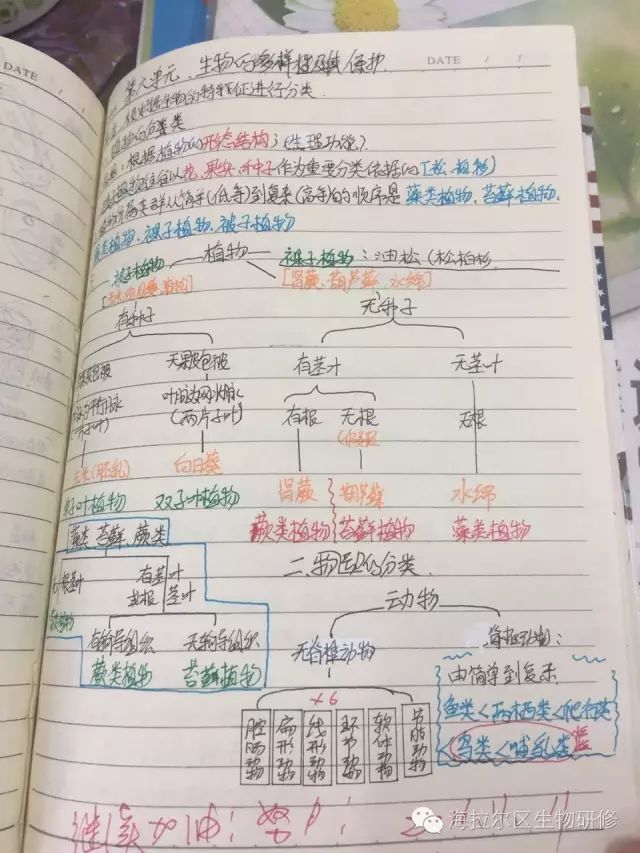 DATE
DATE
第六单元、生物的多样性及其保护
根据生物的特征进行分类
植物的分类
根据植物的形态结构;(生理功能)
花、果实、种子作为重要分类依据的
类群从简单(低等)到复杂(高等)的顺序是 藻类植物、苔藓植物、
植物、裸子植物、被子植物
被子植物 植物 裸子植物:油松(松柏杉
[肾蕨、葫芦藓 水绵]
有种子 无种子
无果皮包被 有茎叶 无茎叶
叶脉为网状脉
(两片子叶) 有根 无根 无根
(假根)
玉米(胚乳) 向日葵 肾蕨 葫芦藓 水绵
单子叶植物 双子叶植物 蕨类植物 苔藓植物 藻类植物
藻类 苔藓 蕨类
二、物的分类
根茎叶 有茎叶
动物
有输导组织 无输导组织 无脊椎动物 脊椎动物:
蕨类植物 苔藓植物 由简单到复杂
×6 鱼类<两栖类<爬行类
<鸟类<哺乳类
腔肠动物 扁形动物 线形动物 环节动物 软体动物 节肢动物
继续加油!
海拉尔区生物研修